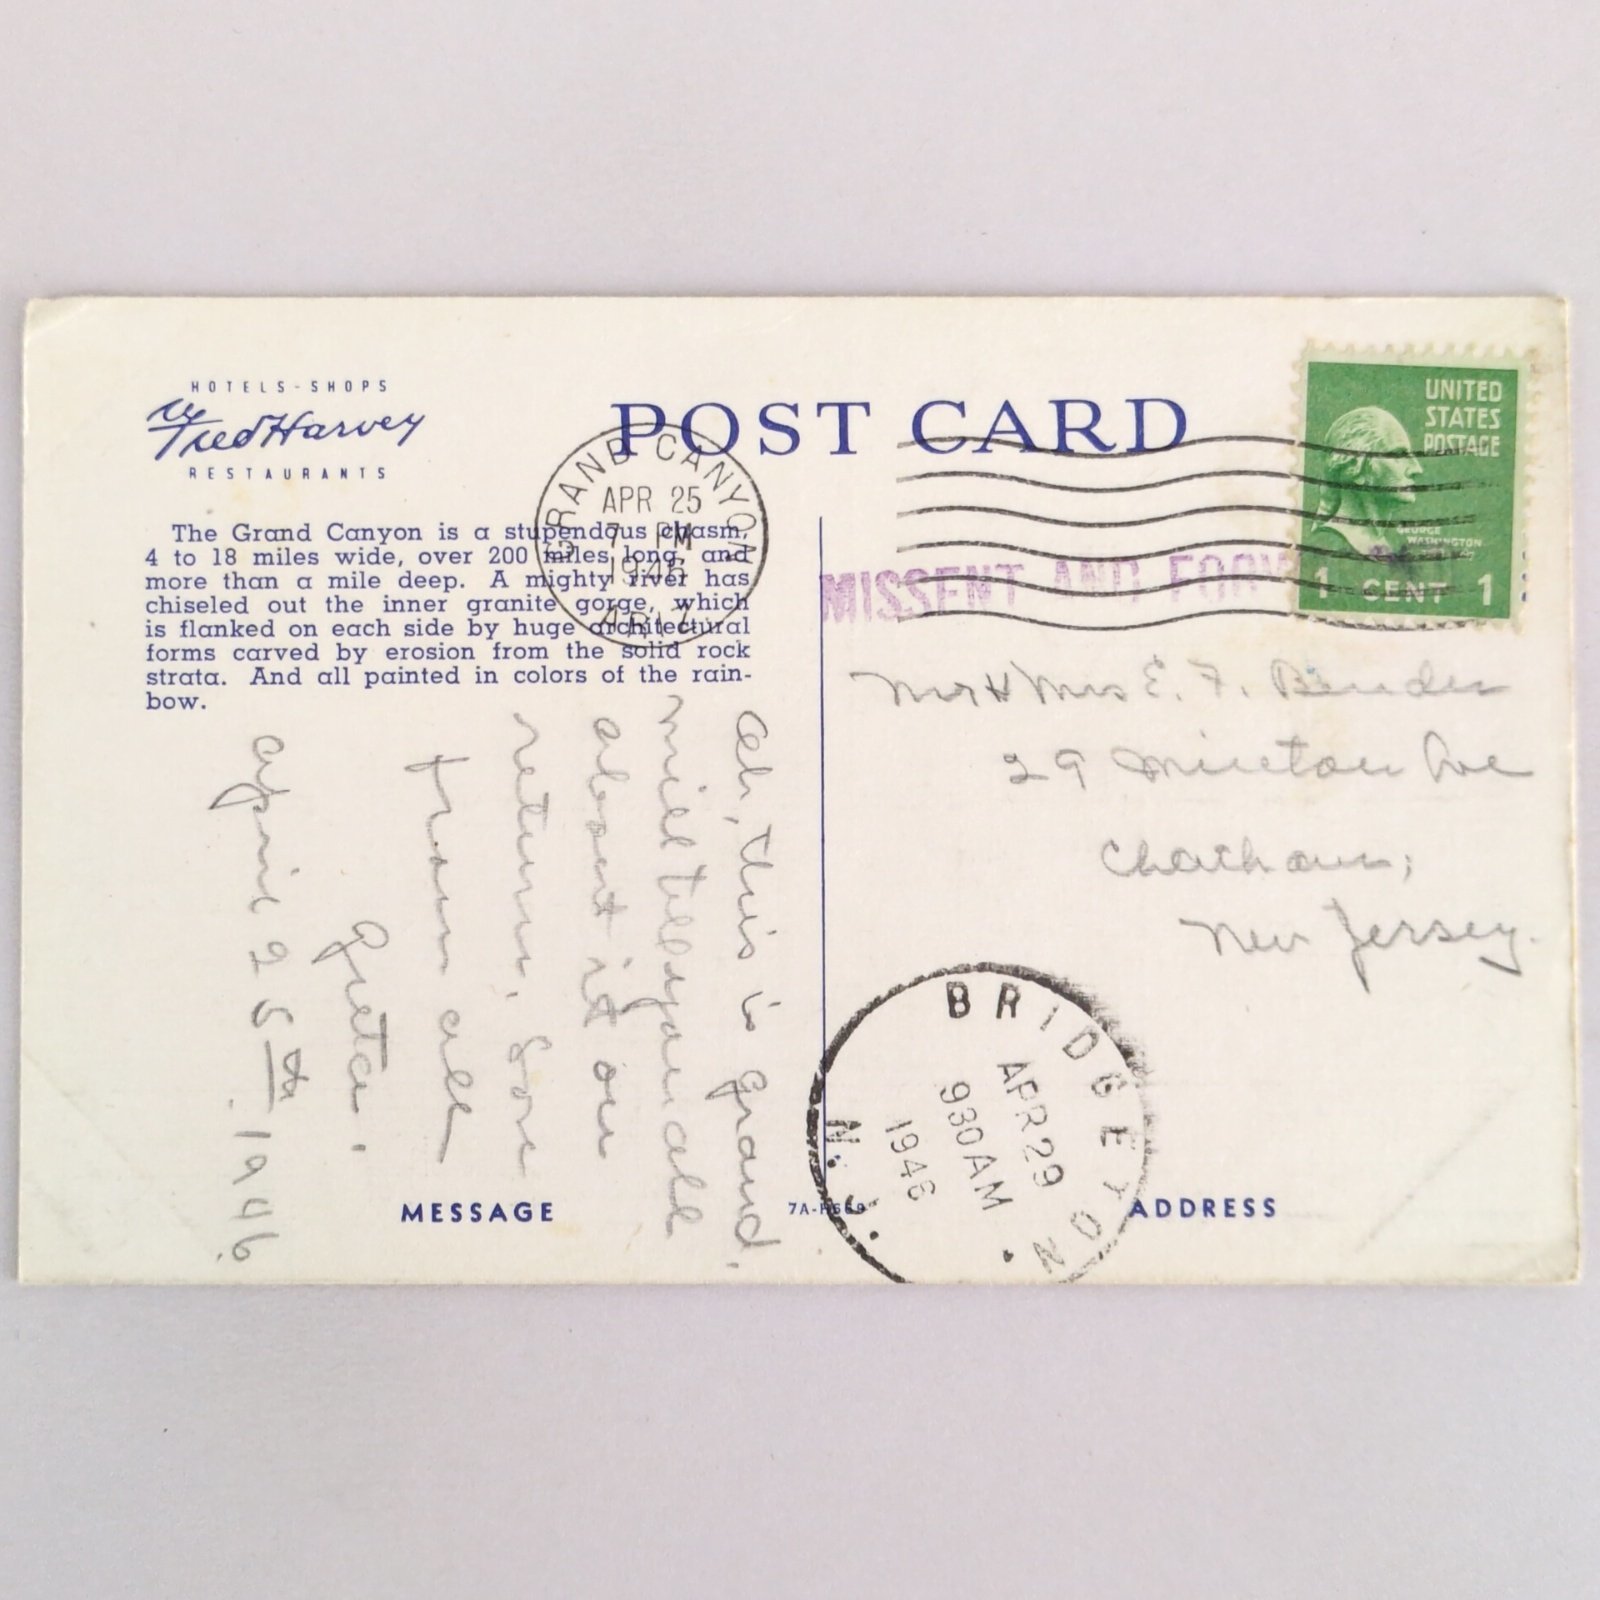 HOTELS-SHOPS
Fred Harvey
RESTAURANTS
POST CARD
The Grand Canyon is a stupendous chasm,
4 to 18 miles wide, over 200 miles long, and
more than a mile deep. A mighty river has
chiseled out the inner granite gorge, which
is flanked on each side by huge architectural
forms carved by erosion from the solid rock
strata. And all painted in colors of the rain-
bow.
GRAND CANYON
APR 25
7 PM
1946
ARIZ.
UNITED
STATES
POSTAGE
GEORGE
WASHINGTON
1 CENT 1
MISSENT AND FORW
Mr & Mrs E. F. Bender
29 Minton Ave
Chatham,
New Jersey.
Oh, this is grand,
will tell you all
about it on
return. Love
from all
Greta.
April 25th. 1946.
BRIDGETON
APR 29
930AM
1946
N.J.
MESSAGE
ADDRESS